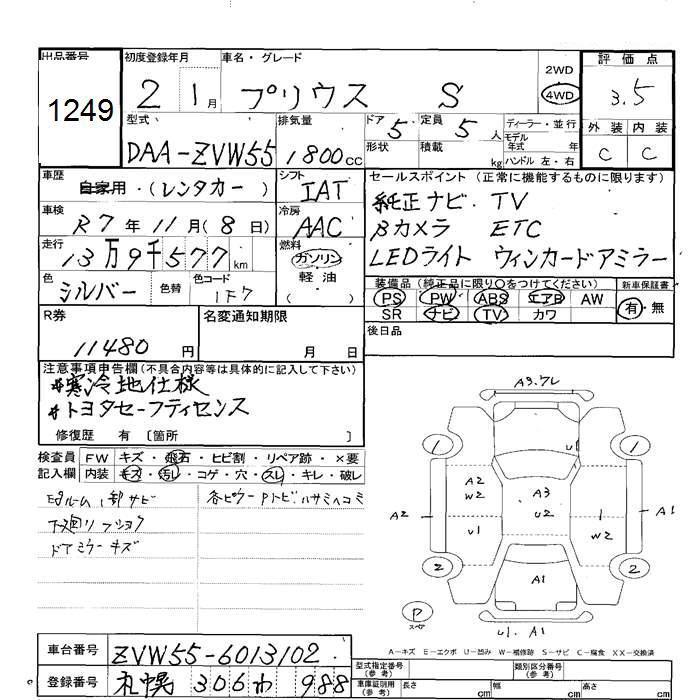 出品番号
1249
初度登録年月
2 1月
車名・グレード
プリウス S
2WD
4WD
評価点
3.5
型式
DAA-ZVW55
排気量
1800cc
ドア 5
形状
定員 5 人
積載 kg
ディーラー・並行
モデル年式 年
ハンドル 左・右
外装 内装
C C
車歴
自家用・(レンタカー)
シフト
IAT
セールスポイント (正常に機能するものに限ります)
純正ナビ TV
Bカメラ ETC
LEDライト ウィンカードアミラー
車検
R7年 11月(8日)
冷房
AAC
走行
13万9千577km
燃料
ガソリン
軽油
( )
色
シルバー
色替
色コード
1F7
装備品 (純正品に限り○をつけてください)
PS PW ABS エアB AW
SR ナビ TV カワ
新車保証書
有・無
R券
11480円
名変通知期限
月 日
後日品
注意事項申告欄 (不具合内容等は具体的に記入して下さい)
#寒冷地仕様
#トヨタセーフティセンス
修復歴 有 〔箇所 〕
検査員記入欄
FW キズ・飛石・ヒビ割・リペア跡・×要
内装 キズ・汚レ・コゲ・穴・スレ・キレ・破レ
ドアミラーキズ
A3.7L
1 1
U1
A2
W2
A3
U2
A2
U1
1
W2
A1
2 2
A1
P
スペア
U1. A1
A-キズ E-エクボ U-凹み W-補修跡 S-サビ C-腐食 XX-交換済
車台番号
ZVW55-6013102
登録番号
札幌 306 わ 988
型式指定番号(参考)
類別区分番号(参考)
車庫証明用(参考)
長さ cm 幅 cm 高さ cm